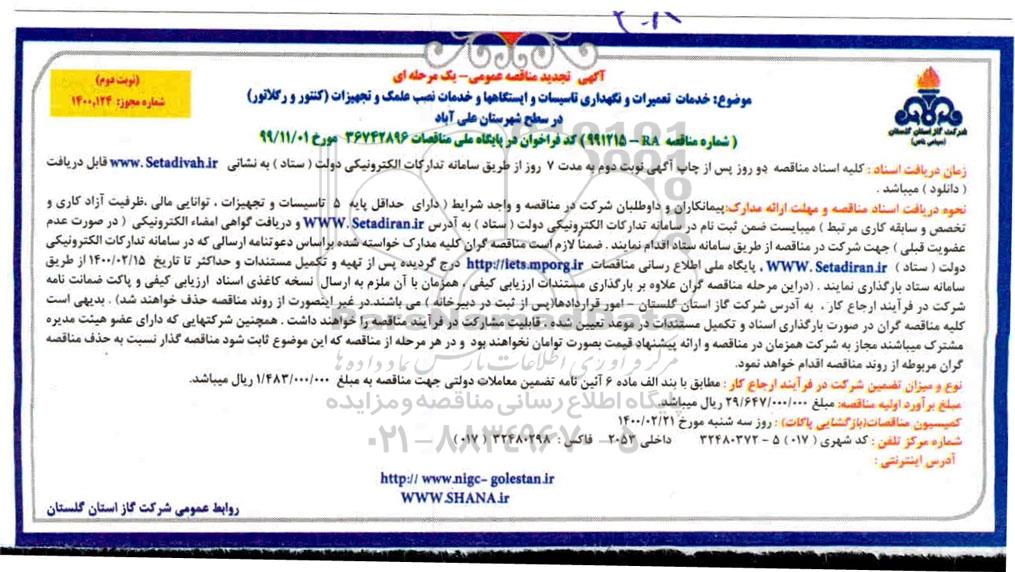 آگهی تجدید مناقصه عمومی- یک مرحله ای
(نوبت دوم)
شماره مجوز: ۱۴۰۰,۱۲۴
موضوع: خدمات تعمیرات و نگهداری تاسیسات و ایستگاهها و خدمات نصب علمک و تجهیزات (کنتور و رگلاتور)
در سطح شهرستان علی آباد
شرکت گاز استان گلستان
(سهامی خاص)
( شماره مناقصه RA – ۹۹۱۲۱۵) کد فراخوان در پایگاه ملی مناقصات ۳۶۷۴۲۸۹۶ مورخ ۹۹/۱۱/۰۱ )
زمان دریافت اسناد : کلیه اسناد مناقصه دو روز پس از چاپ آگهی نوبت دوم به مدت ۷ روز از طریق سامانه تدارکات الکترونیکی دولت ( ستاد ) به نشانی www.Setadivah.ir قابل دریافت
( دانلود ) میباشد .
نحوه دریافت اسناد مناقصه و مهلت ارائه مدارک:پیمانکاران و داوطلبان شرکت در مناقصه و واجد شرایط ( دارای حداقل پایه ۵ تاسیسات و تجهیزات ، توانایی مالی ،ظرفیت آزاد کاری و
تخصص و سابقه کاری مرتبط ) میبایست ضمن ثبت نام در سامانه تدارکات الکترونیکی دولت ( ستاد ) به آدرس WWW.Setadiran.ir و دریافت گواهی امضاء الکترونیکی ( در صورت عدم
عضویت قبلی ) جهت شرکت در مناقصه از طریق سامانه ستاد اقدام نمایند . ضمناً لازم است مناقصه گران کلیه مدارک خواسته شده براساس دعوتنامه ارسالی که در سامانه تدارکات الکترونیکی
دولت ( ستاد ) WWW. Setadiran.ir ، پایگاه ملی اطلاع رسانی مناقصات http://iets.mporg.ir درج گردیده پس از تهیه و تکمیل مستندات و حداکثر تا تاریخ ۱۴۰۰/۰۲/۱۵ از طریق
سامانه ستاد بارگذاری نمایند . (دراین مرحله مناقصه گران علاوه بر بارگذاری مستندات ارزیابی کیفی ، همزمان با آن ملزم به ارسال نسخه کاغذی اسناد ارزیابی کیفی و پاکت ضمانت نامه
شرکت در فرآیند ارجاع کار ، به آدرس شرکت گاز استان گلستان – امور قراردادها(پس از ثبت در دبیرخانه ) می باشند.در غیر اینصورت از روند مناقصه حذف خواهند شد) . بدیهی است
کلیه مناقصه گران در صورت بارگذاری اسناد و تکمیل مستندات در موعد تعیین شده ، قابلیت مشارکت در فرآیند مناقصه را خواهند داشت . همچنین شرکتهایی که دارای عضو هیئت مدیره
مشترک میباشند مجاز به شرکت همزمان در مناقصه و ارائه پیشنهاد قیمت بصورت توامان نخواهند بود و در هر مرحله از مناقصه که این موضوع ثابت شود مناقصه گذار نسبت به حذف مناقصه
گران مربوطه از روند مناقصه اقدام خواهد نمود.
نوع و میزان تضمین شرکت در فرآیند ارجاع کار : مطابق با بند الف ماده ۶ آئین نامه تضمین معاملات دولتی جهت مناقصه به مبلغ ۱/۴۸۳/۰۰۰/۰۰۰ ریال میباشد.
مبلغ برآورد اولیه مناقصه: مبلغ ۲۹/۶۴۷/۰۰۰/۰۰۰ ریال میباشد.
کمیسیون مناقصات(بازگشایی پاکات) : روز سه شنبه مورخ ۱۴۰۰/۰۲/۲۱
شماره مرکز تلفن : کد شهری ( ۰۱۷ ) ۵ – ۳۲۴۸۰۳۷۲ داخلی ۲۰۵۲– فاکس : ۳۲۴۸۰۲۹۸ ( ۰۱۷ )
آدرس اینترنتی :
http:// www.nigc- golestan.ir
WWW.SHANA.ir
روابط عمومی شرکت گاز استان گلستان
ParsNamadData
مرکز فرآوری اطلاعات پارس نماد داده ها
پایگاه اطلاع رسانی مناقصه و مزایده
۰۲۱-۸۸۳۴۹۶۷۰-۵